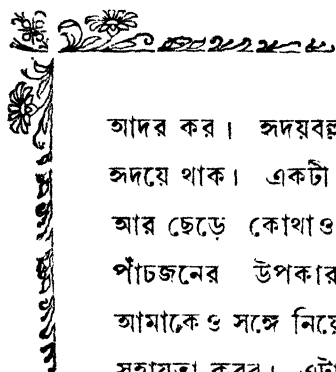 আদর কর। হৃদয়বল্ল
হৃদয়ে থাক। একটা
আর ছেড়ে কোথাও
পাঁচজনের উপকার
আমাকেও সঙ্গে নিয়ে
সহায়তা করব। এটা